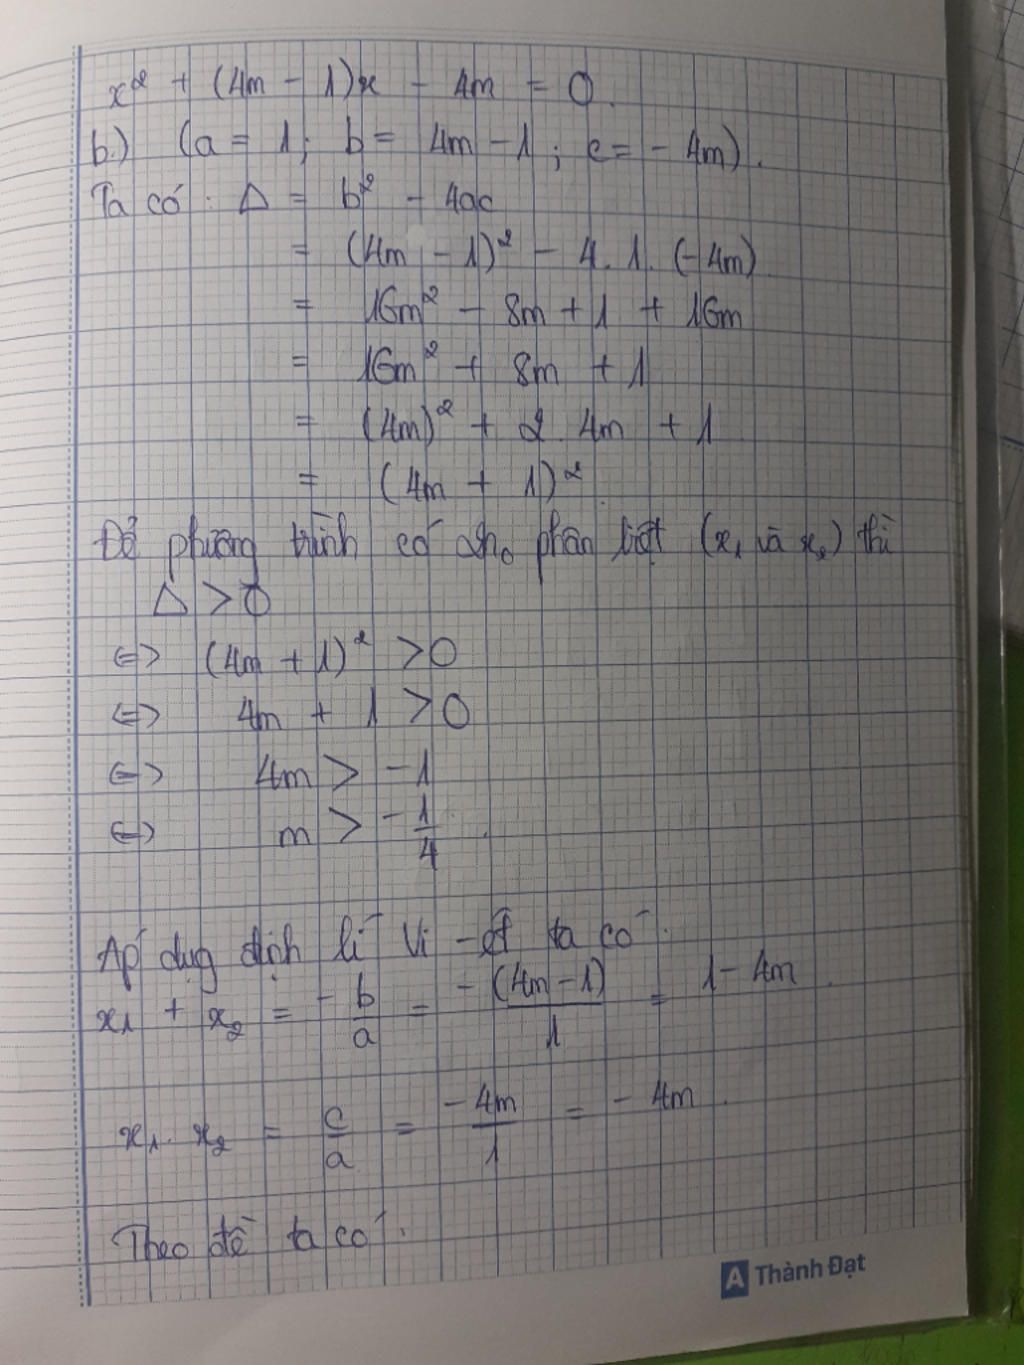 x² + (4m - 1)x - 4m = 0.
b.) (a = 1; b = 4m - 1; c = - 4m).
Ta có: Δ = b² - 4ac
= (4m - 1)² - 4. 1. (-4m)
= 16m² - 8m + 1 + 16m
= 16m² + 8m + 1
= (4m)² + 2. 4m + 1
= (4m + 1)²
Để phương trình có 2n₀ phân biệt (x₁ và x₂) thì
Δ > 0
<=> (4m + 1)² > 0
<=> 4m + 1 > 0
<=> 4m > -1
<=> m > -1/4.
Áp dụng định lí Vi-ét ta có:
x₁ + x₂ = -b/a = -(4m-1)/1 = 1 - 4m.
x₁. x₂ = c/a = -4m/1 = - 4m.
Theo đề ta có:
A Thành Đạt